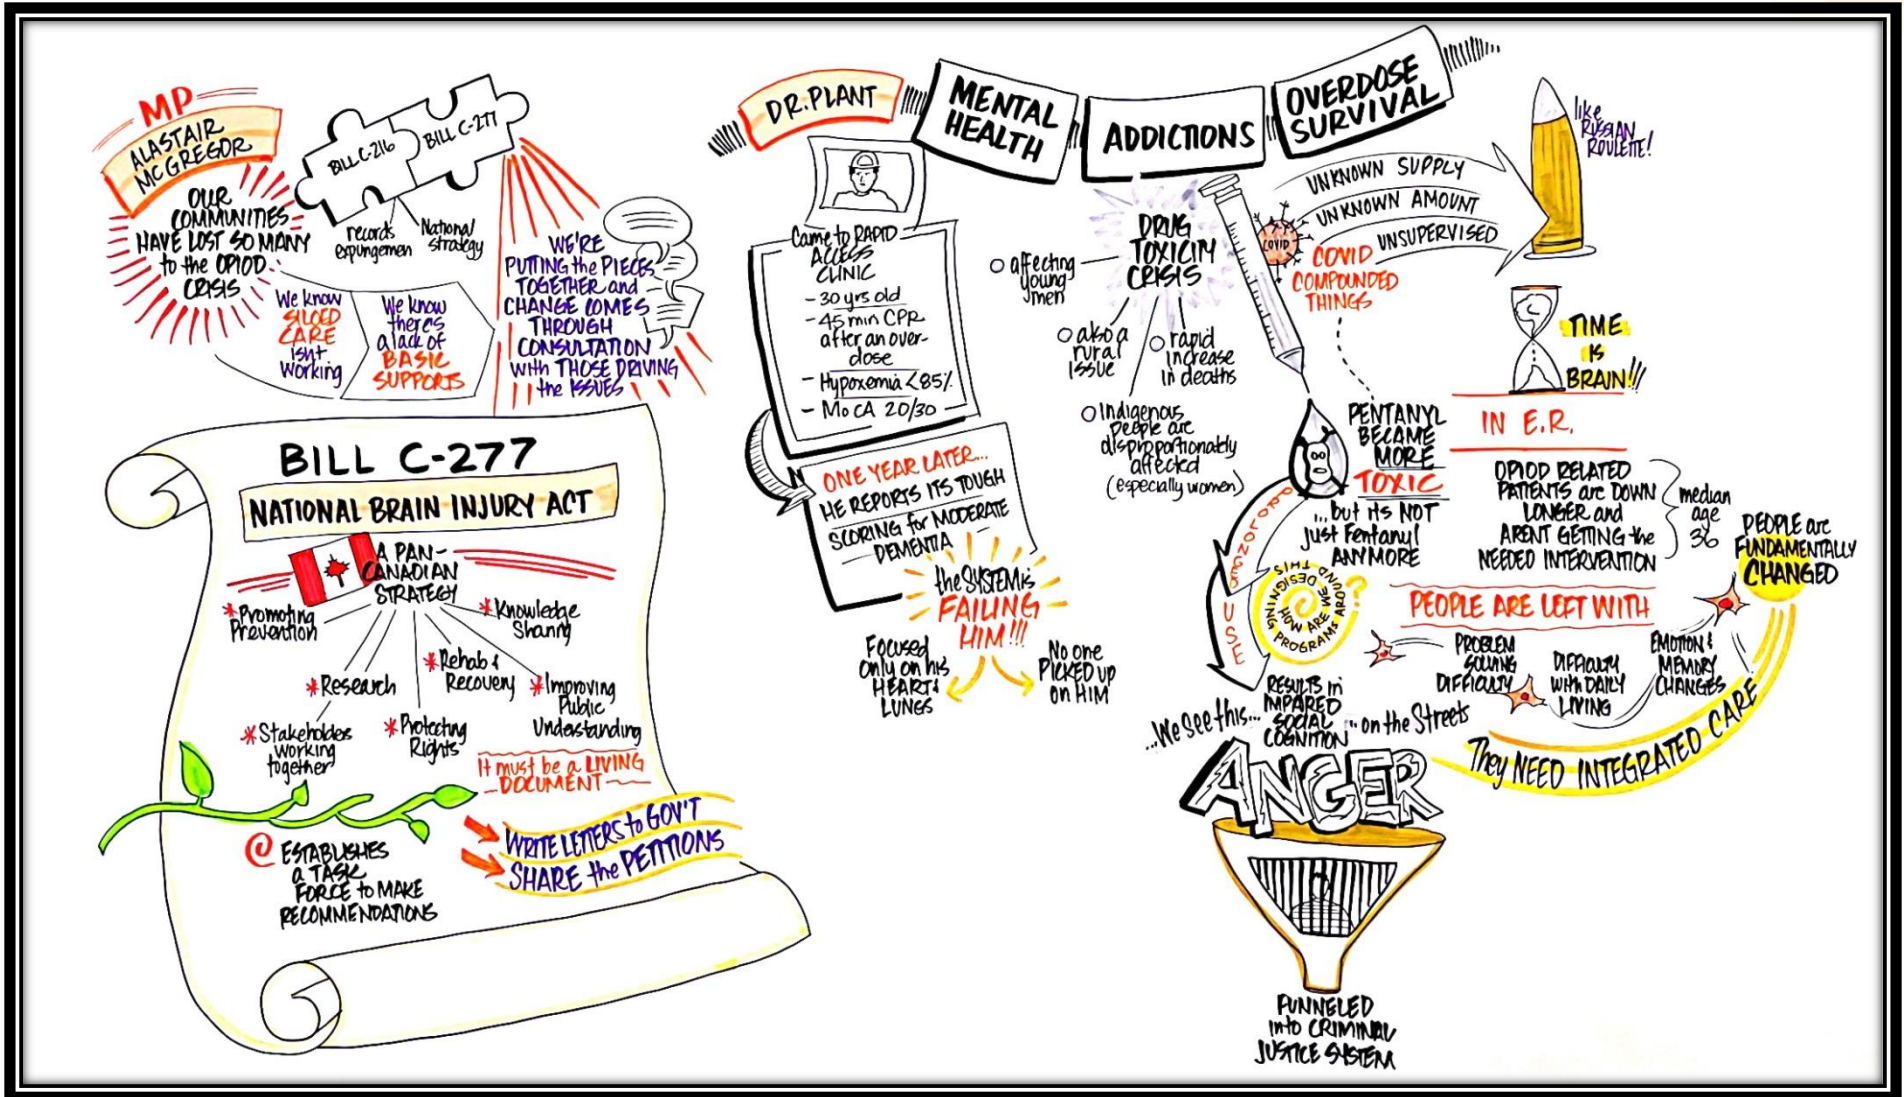 MP
ALASTAIR
MCGREGOR
OUR
COMMUNITIES
HAVE LOST SO MANY
to the OPIOD
CRISIS
BILL C-216
BILL C-277
records
expungemen
National
strategy
We know
SILOED
CARE
isn't
working
We know
there's
a lack of
BASIC
SUPPORTS
WE'RE
PUTTING the PIECES
TOGETHER and
CHANGE COMES
THROUGH
CONSULTATION
with THOSE DRIVING
the ISSUES
BILL C-277
NATIONAL BRAIN INJURY ACT
A PAN-
CANADIAN
STRATEGY
* Promoting
Prevention
* Knowledge
Sharing
* Research
* Rehab &
Recovery
* Improving
Public
Understanding
* Stakeholdes
working
together
* Protecting
Rights
It must be a LIVING
DOCUMENT
ESTABLISHES
a TASK
FORCE to MAKE
RECOMMENDATIONS
WRITE LETTERS to GOV'T
SHARE the PETITIONS
DR. PLANT
MENTAL
HEALTH
ADDICTIONS
OVERDOSE
SURVIVAL
Came to RAPID
ACCESS
CLINIC
- 30 yrs old
- 45 min CPR
after an over-
dose
- Hypoxemia <85%
- MoCA 20/30
ONE YEAR LATER...
HE REPORTS ITS TOUGH
SCORING for MODERATE
DEMENTIA
the SYSTEM is
FAILING
HIM!!!
Focused
only on his
HEART &
LUNGS
No one
PICKED up
on HIM
DRUG
TOXICITY
CRISIS
affecting
young
men
also a
rural
issue
rapid
increase
in deaths
Indigenous
people are
disproportionately
affected
(especially women)
COVID
COVID
COMPOUNDED
THINGS
UNKNOWN SUPPLY
UNKNOWN AMOUNT
UNSUPERVISED
like
RUSSIAN
ROULETTE!
TIME
IS
BRAIN!!!
FENTANYL
BECAME
MORE
TOXIC
...but its NOT
just Fentanyl
ANYMORE
IN E.R.
OPIOD RELATED
PATIENTS are DOWN
LONGER and
ARENT GETTING the
NEEDED INTERVENTION
median
age
36
PEOPLE are
FUNDAMENTALLY
CHANGED
PROLONGED USE
HOW ARE WE DESIGNING PROGRAMS AROUND THIS?
PEOPLE ARE LEFT WITH
PROBLEM
SOLVING
DIFFICULTY
DIFFICULTY
with DAILY
LIVING
EMOTION &
MEMORY
CHANGES
They NEED INTEGRATED CARE
RESULTS in
IMPARED
SOCIAL
COGNITION
...We see this...
...on the Streets
ANGER
FUNNELED
into CRIMINAL
JUSTICE SYSTEM